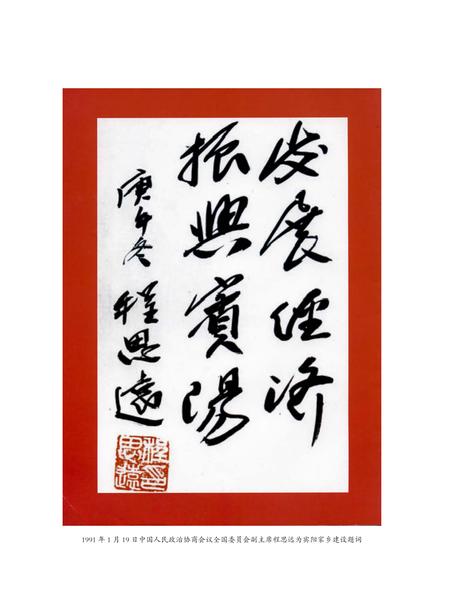 发展经济
振兴賓陽
庚午冬
程思遠
程思远印
1991 年 1 月 19 日中国人民政治协商会议全国委员会副主席程思远为宾阳家乡建设题词